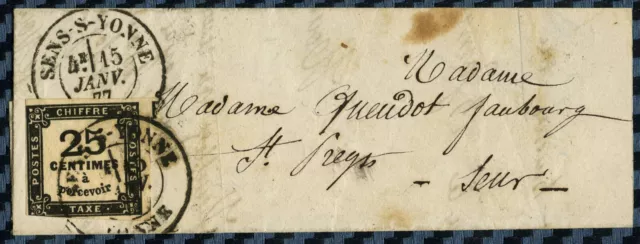 SENS-S-YONNE
4E 15
JANV.
77
CHIFFRE
POSTES
POSTES
25
CENTIMES
à
percevoir
TAXE
YONNE
Madame
Madame Gueudot faubourg
St. Pregts
- Sens -